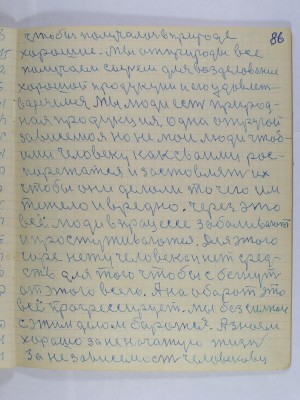 86
чтобы получалось в природе
хорошие. Мы от природы все
получаем сырьем для возделование
хорошой продукции и его удовлет-
варяимся Мы люди есть природ-
ная продукция, одна от другой
зависимоя но не мои люди чтоб-
ими человеку как своими рос-
поряжатся и заставлят их
чтобы они делали то чего им
тяжело и вредно. через это
всё люди в процессе заболивают
и простуживаются. Для этого
горе нету человеком нет сред-
ств для того чтобы с бегнут
от этого всего. А на оборот это
всё прогрессирует. мы без сильны
с этим делом боротся. А знаем
хорошо за не начатую жизн
За не зависемость человекови